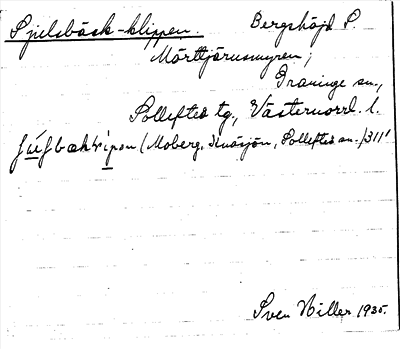 Spjelsbäck-klippen. Bergshöjd S.
Mörttjärnsmyren,
Graninge sn.,
Sollefteå tg., Västernorrl. l.
(Moberg, Sollefteå sn.) 311'
Sven Hiller 1935.